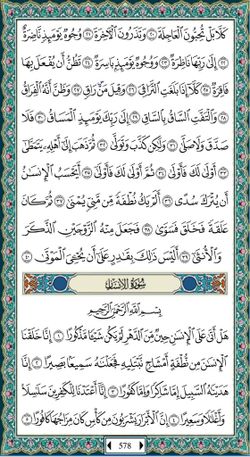 كَلَّا بَلْ تُحِبُّونَ الْعَاجِلَةَ ٢٠ وَتَذَرُونَ الْآخِرَةَ ٢١ وُجُوهٌ يَوْمَئِذٍ نَّاضِرَةٌ
٢٢ إِلَىٰ رَبِّهَا نَاظِرَةٌ ٢٣ وَوُجُوهٌ يَوْمَئِذٍ بَاسِرَةٌ ٢٤ تَظُنُّ أَن يُفْعَلَ بِهَا
فَاقِرَةٌ ٢٥ كَلَّا إِذَا بَلَغَتِ التَّرَاقِيَ ٢٦ وَقِيلَ مَنْ رَاقٍ ٢٧ وَظَنَّ أَنَّهُ الْفِرَاقُ
٢٨ وَالْتَفَّتِ السَّاقُ بِالسَّاقِ ٢٩ إِلَىٰ رَبِّكَ يَوْمَئِذٍ الْمَسَاقُ ٣٠ فَلَا
صَدَّقَ وَلَا صَلَّىٰ ٣١ وَلَٰكِن كَذَّبَ وَتَوَلَّىٰ ٣٢ ثُمَّ ذَهَبَ إِلَىٰ أَهْلِهِ يَتَمَطَّىٰ
٣٣ أَوْلَىٰ لَكَ فَأَوْلَىٰ ٣٤ ثُمَّ أَوْلَىٰ لَكَ فَأَوْلَىٰ ٣٥ أَيَحْسَبُ الْإِنسَانُ
أَن يُتْرَكَ سُدًى ٣٦ أَلَمْ يَكُ نُطْفَةً مِّن مَّنِيٍّ يُمْنَىٰ ٣٧ ثُمَّ كَانَ
عَلَقَةً فَخَلَقَ فَسَوَّىٰ ٣٨ فَجَعَلَ مِنْهُ الزَّوْجَيْنِ الذَّكَرَ
وَالْأُنثَىٰ ٣٩ أَلَيْسَ ذَٰلِكَ بِقَادِرٍ عَلَىٰ أَن يُحْيِيَ الْمَوْتَىٰ ٤٠
سُورَةُ الْإِنسَانِ
بِسْمِ اللَّهِ الرَّحْمَٰنِ الرَّحِيمِ
هَلْ أَتَىٰ عَلَى الْإِنسَانِ حِينٌ مِّنَ الدَّهْرِ لَمْ يَكُن شَيْئًا مَّذْكُورًا ١ إِنَّا خَلَقْنَا
الْإِنسَانَ مِن نُّطْفَةٍ أَمْشَاجٍ نَّبْتَلِيهِ فَجَعَلْنَاهُ سَمِيعًا بَصِيرًا ٢ إِنَّا
هَدَيْنَاهُ السَّبِيلَ إِمَّا شَاكِرًا وَإِمَّا كَفُورًا ٣ إِنَّا أَعْتَدْنَا لِلْكَافِرِينَ سَلَاسِلَا
وَأَغْلَالًا وَسَعِيرًا ٤ إِنَّ الْأَبْرَارَ يَشْرَبُونَ مِن كَأْسٍ كَانَ مِزَاجُهَا كَافُورًا ٥
578